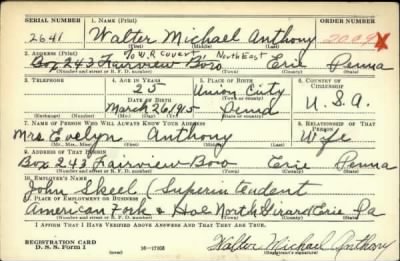 SERIAL NUMBER 1. NAME (Print) ORDER NUMBER
2641 Walter Michael Anthony 2009 X
(First) (Middle) (Last)
To W.R. Covert NorthEast
2. ADDRESS (Print)
Box 243 Fairview Boro Erie Penna
(Number and street or R. F. D. number) (Town) (County) (State)
3. TELEPHONE 4. AGE IN YEARS 5. PLACE OF BIRTH 6. COUNTRY OF CITIZENSHIP
25 Union City U.S.A.
DATE OF BIRTH (Town or county)
March 26 1915 Penna
(Exchange) (No.) (Mo.) (Day) (Yr.) (State or country)
7. NAME OF PERSON WHO WILL ALWAYS KNOW YOUR ADDRESS 8. RELATIONSHIP OF THAT PERSON
Mrs Evelyn Anthony Wife
(Mr., Mrs., Miss) (First) (Middle) (Last)
9. ADDRESS OF THAT PERSON
Box 243 Fairview Boro Erie Penna
(Number and street or R. F. D. number) (Town) (County) (State)
10. EMPLOYER'S NAME
John Skeel (Superintendent
11. PLACE OF EMPLOYMENT OR BUSINESS
American Fork & Hoe North Girard Erie Pa
(Number and street or R. F. D. number) (Town) (County) (State)
I AFFIRM THAT I HAVE VERIFIED ABOVE ANSWERS AND THAT THEY ARE TRUE.
REGISTRATION CARD
D. S. S. Form 1 (over) 16-17105 Walter Michael Anthony